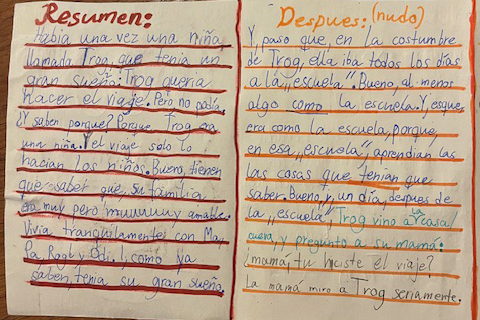 Resumen:
Habia una vez una niña,
llamada Trog, que tenia un
gran sueño: Trog queria
hacer el viaje. Pero no podia,
¿Y saben porque? Porque Trog era
una niña. Y el viaje solo lo
hacian los niños. Bueno, tienen
que saber que, su familia
era muy pero muuuuuy amable.
Vivia tranquilamente; con Ma,
Pa, Rog y Od. I, como ya
saben, tenia su gran sueño.
Despues: (nudo)
Y, paso que, en la costumbre
de Trog, ella iba todos los días
a la „escuela". Bueno, al menos
algo como la escuela. Y, esque
era como la escuela, porque,
en esa „escuela", aprendian las
las cosas que tenian que
saber. Bueno, y un día, despues de
la „escuela", Trog vino a la casa/
cueva, y pregunto a su mamá:
¿mamá, tu hiciste el viaje?
La mamá miro a Trog seriamente.